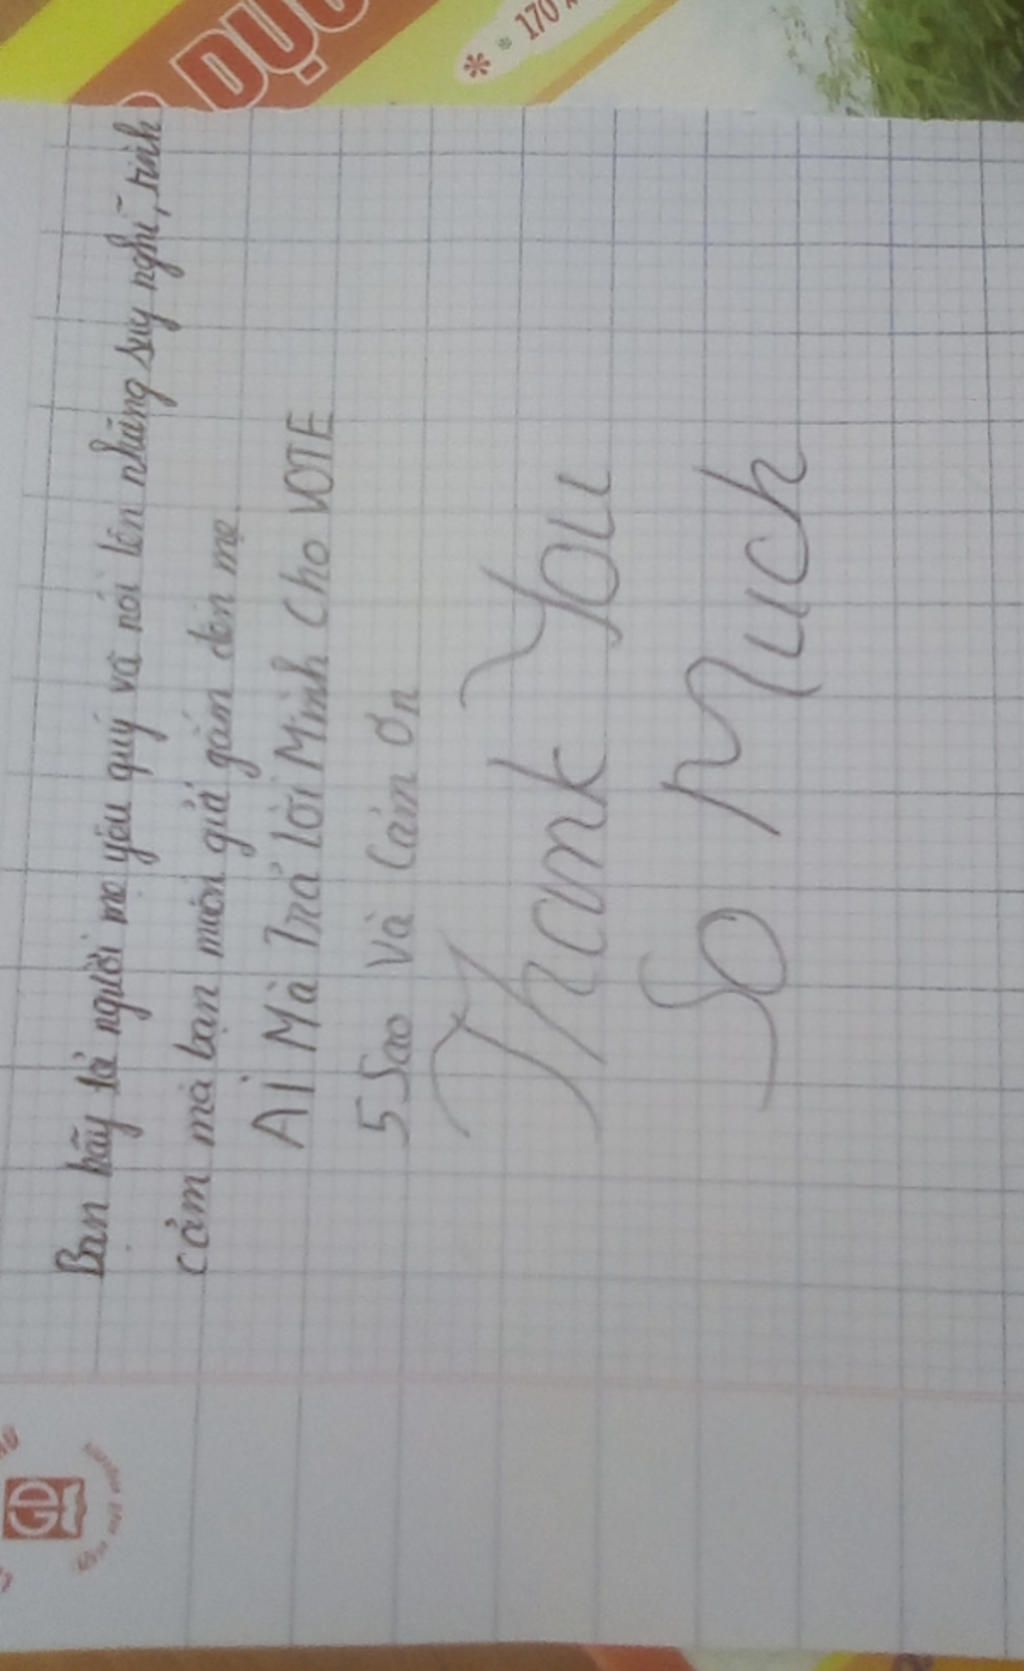 DỤC
* * 170
Bạn hãy tả người mẹ yêu quý và nói lên những suy nghĩ, tình
cảm mà bạn muốn gửi gắm đến mẹ.
Ai Mà Trả lời Mình Cho VOTE
5 Sao Và Cảm Ơn
Thank You
So Much
GD